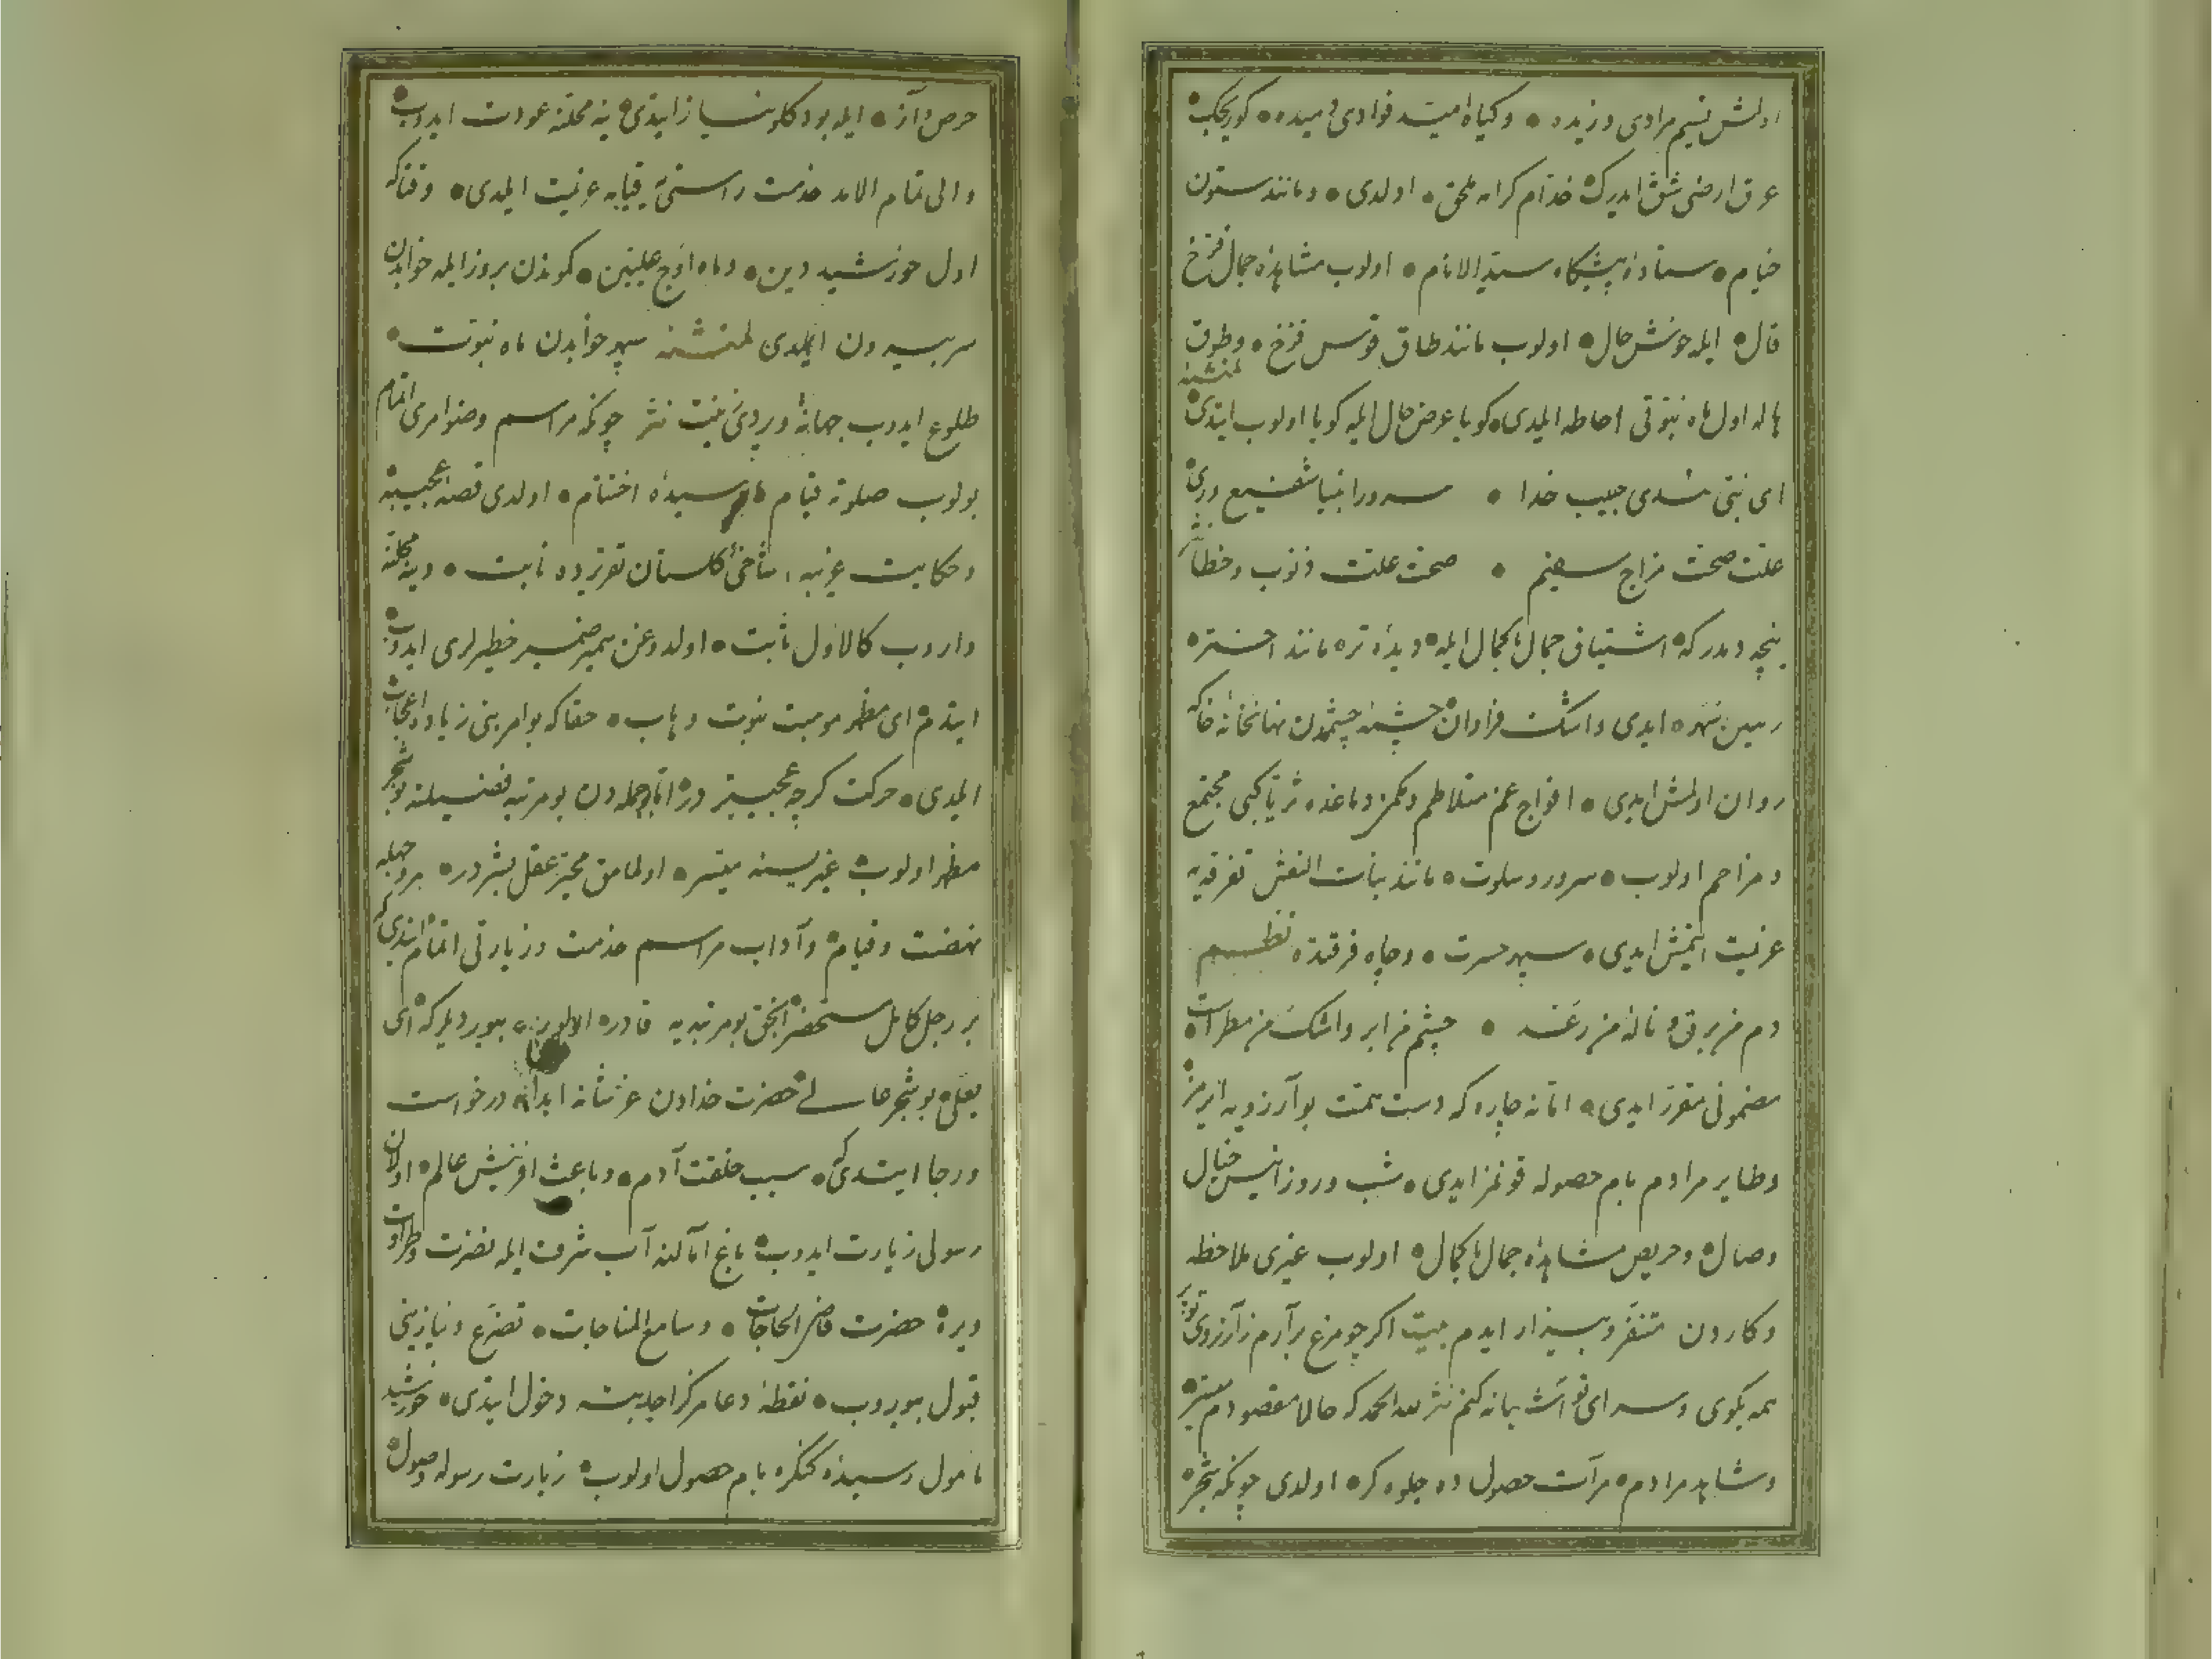 اولمش نسیم مرادی وزیده • وکیاه امید فوادی دمیده • کوریجک
عرق ارضی شق ایدرک خدام کرامه ملحق • اولدی • ومانند ستون
خیام • ستاده پیشکاه سید الانام • اولوب مشاهده جمال فرخ
فال • ایله خوش حال • اولوب مانند طاق قوس قزح • وطوق
هاله اول ماه نبوتی احاطه ایلدی • کویا عرض حال ایله کویا اولوب ایتدی
ای نبی حبیب خدا • سرور انبیا شفیع وری
علت صحت مزاج سقیم • صحت علت ذنوب وخطا نثر
نیچه دمدر که اشتیاق جمال باکمال ایله دیده تره مانند اختره
رهین سهره ایدی واشک فراوان چشمه چشمدن نهانخانه خاکه
روان اولمش ایدی • افواج غم متلاطم دماغده ثریا کبی مجتمع
ومزاحم اولوب • سرور وسلوت • مانند بنات النعش تفرقه یه
عزیت ایتمش ایدی • سپهر حسرت • وچاه فرقتده نظم
دم من برق و ناله من رعد • چشم من ابر واشک من مطرات
مضمونی مقرر ایدی • اما نه چاره که دست همت بو آرزویه ایرمز
وطایر مرادم بام حصوله قونمز ایدی • شب وروز انیس خیال
وصال • وحریص مشاهده جمال باکمال • اولوب غیری ملاحظه
وکاردن متنفر وبیزار ایدم بیت اکر چو مرغ برآرم ز آرزوی تو پر
همه بکوی وسرای تو آشیانه کنم نثر لله الحمد که حالا مقصودم میسر
وشاهد مرادم • مرآت حصول ده جلوه کر • اولدی چونکه شجره
حرص وآز • ایله بو دکلو نیاز ایتدی ینه محلنه عودت ایدوب
والی تمام الامد خدمت راستی یه قیامه عزیت ایلدی • وقتاکه
اول خورشید دین • وماه اوج علیین • کوندن بروز ایله خوابدن
سر بیرون ایلدی سپهر خوابدن ماه نبوت •
طلوع ایدوب جهانه ویردی زینت نثر چونکه مراسم وضو امری اتمام
بولوب صلوته قیام رسیده اختتام • اولدی قصه عجیبه
وحکایت غریبه شاخی کلستان تقریرده نابت • وینه محلنه
واروب کالاول ثابت • اولدوغن سمیر ضمیر خطیرلری ایدوب
ایتدم ای مظهر موهبت نبوت وهاب • حقا که بو امر بنی زیاده اعجاب
ایلدی • حرکت کرچه عجیبتر در اما جمله دن بو مرتبه فضیلته بو شجر
مظهر اولوب غیریسنه میسر • اولمامق محیر عقل بشر در •
نهضت وقیام وآداب مراسم خدمت وزیارتی اتمام ایتدی که
بر رجل کامل بو مرتبه یه قادر اولمز بیوردیلر که ای
یعلی بو شجر حضرت خدادن عز شانه ابدا درخواست
ورجا ایتدی که • سبب خلقت آدم • وباعث آفرینش عالم • اولان
رسولی زیارت ایدوب باغ آمالنه آب شرف ایله نضرت وطراوت
ویره • حضرت قاضی الحاجات • وسامع المناجات • تضرع ونیازینی
قبول بیوروب • نقطه دعا مرکز اجابته دخول ایتدی • خورشید
مامول رسیده کنکره بام حصول اولوب • زیارت رسوله وصول